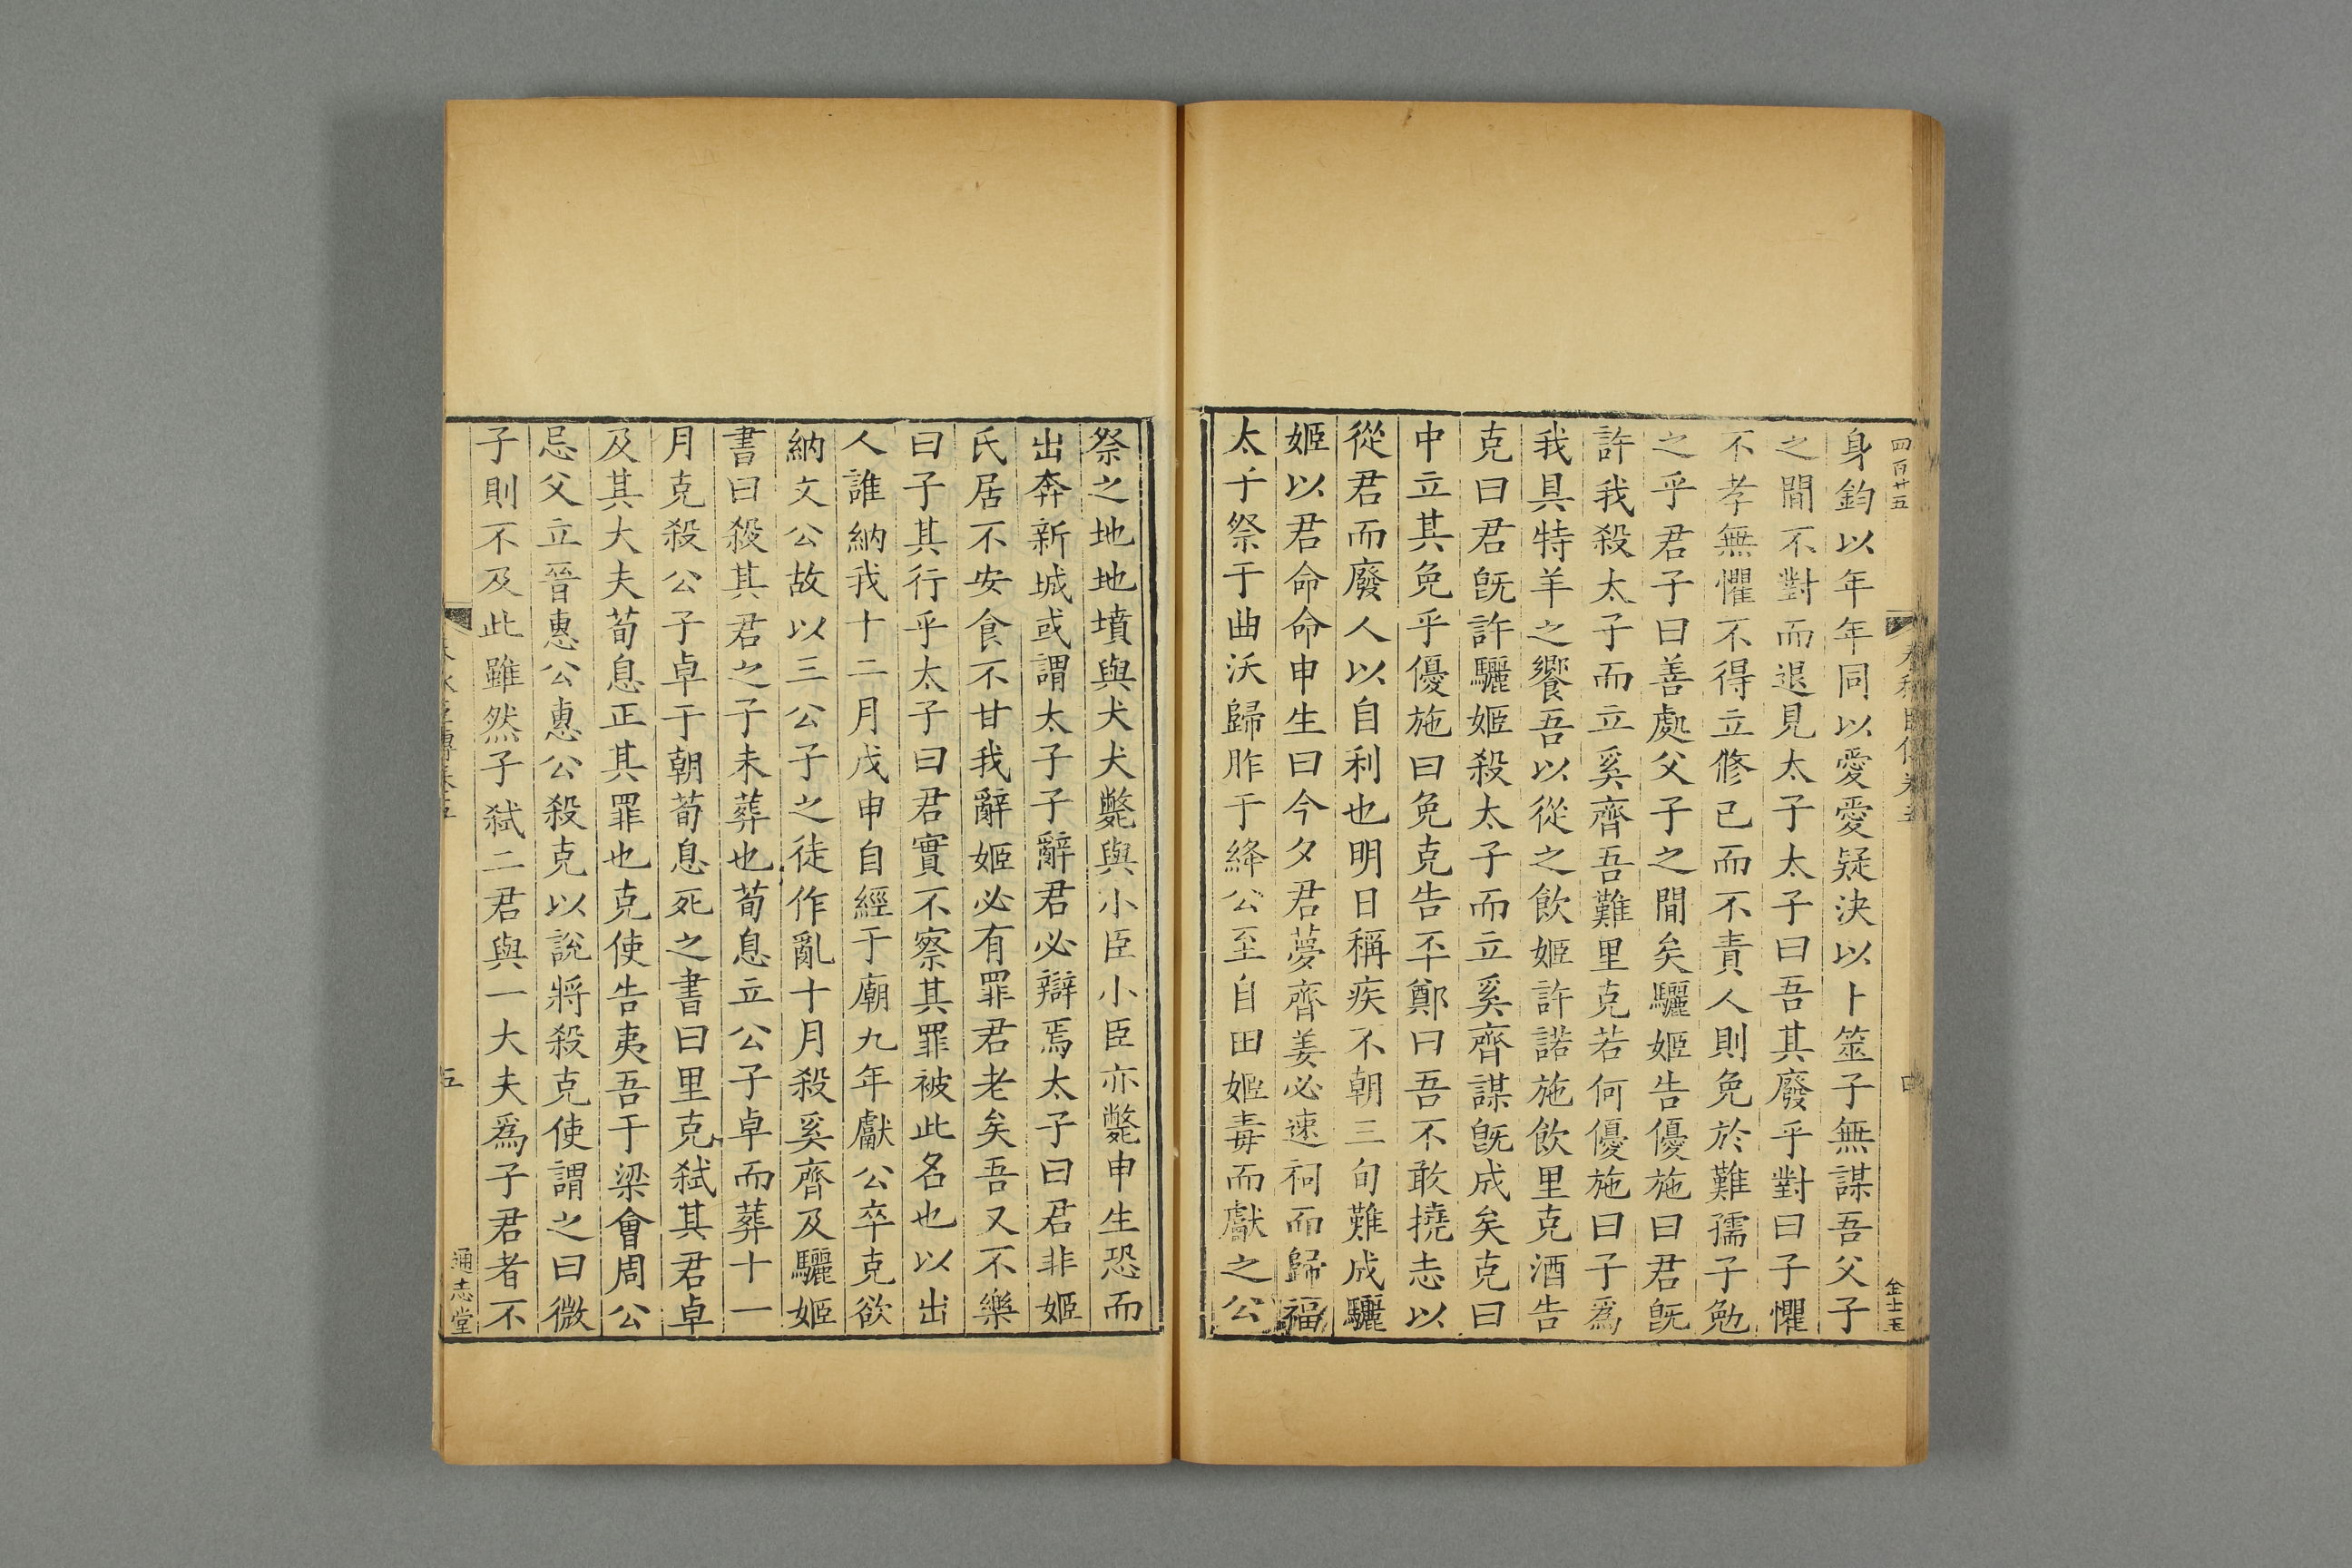 四百廿五
金士玉
身鈞以年年同以愛愛疑決以卜筮子無謀吾父子
之閒不對而退見太子太子曰吾其廢乎對曰子懼
不孝無懼不得立修己而不責人則免於難孺子勉
之乎君子曰善處父子之閒矣驪姬告優施曰君旣
許我殺太子而立奚齊吾難里克若何優施曰子爲
我具特羊之饗吾以從之飲姬許諾施飲里克酒告
克曰君旣許驪姬殺太子而立奚齊謀旣成矣克曰
中立其免乎優施曰免克告丕鄭曰吾不敢撓志以
從君而廢人以自利也明日稱疾不朝三旬難成驪
姬以君命命申生曰今夕君夢齊姜必速祠而歸福
太子祭于曲沃歸胙于絳公至自田姬毒而獻之公
祭之地地墳與犬犬斃與小臣小臣亦斃申生恐而
出奔新城或謂太子子辭君必辯焉太子曰君非姬
氏居不安食不甘我辭姬必有罪君老矣吾又不樂
曰子其行乎太子曰君實不察其罪被此名也以出
人誰納我十二月戊申自經于廟九年獻公卒克欲
納文公故以三公子之徒作亂十月殺奚齊及驪姬
書曰殺其君之子未葬也荀息立公子卓而葬十一
月克殺公子卓于朝荀息死之書曰里克弒其君卓
及其大夫荀息正其罪也克使告夷吾于梁會周公
忌父立晉惠公惠公殺克以說將殺克使謂之曰微
子則不及此雖然子弒二君與一大夫爲子君者不
五
通志堂